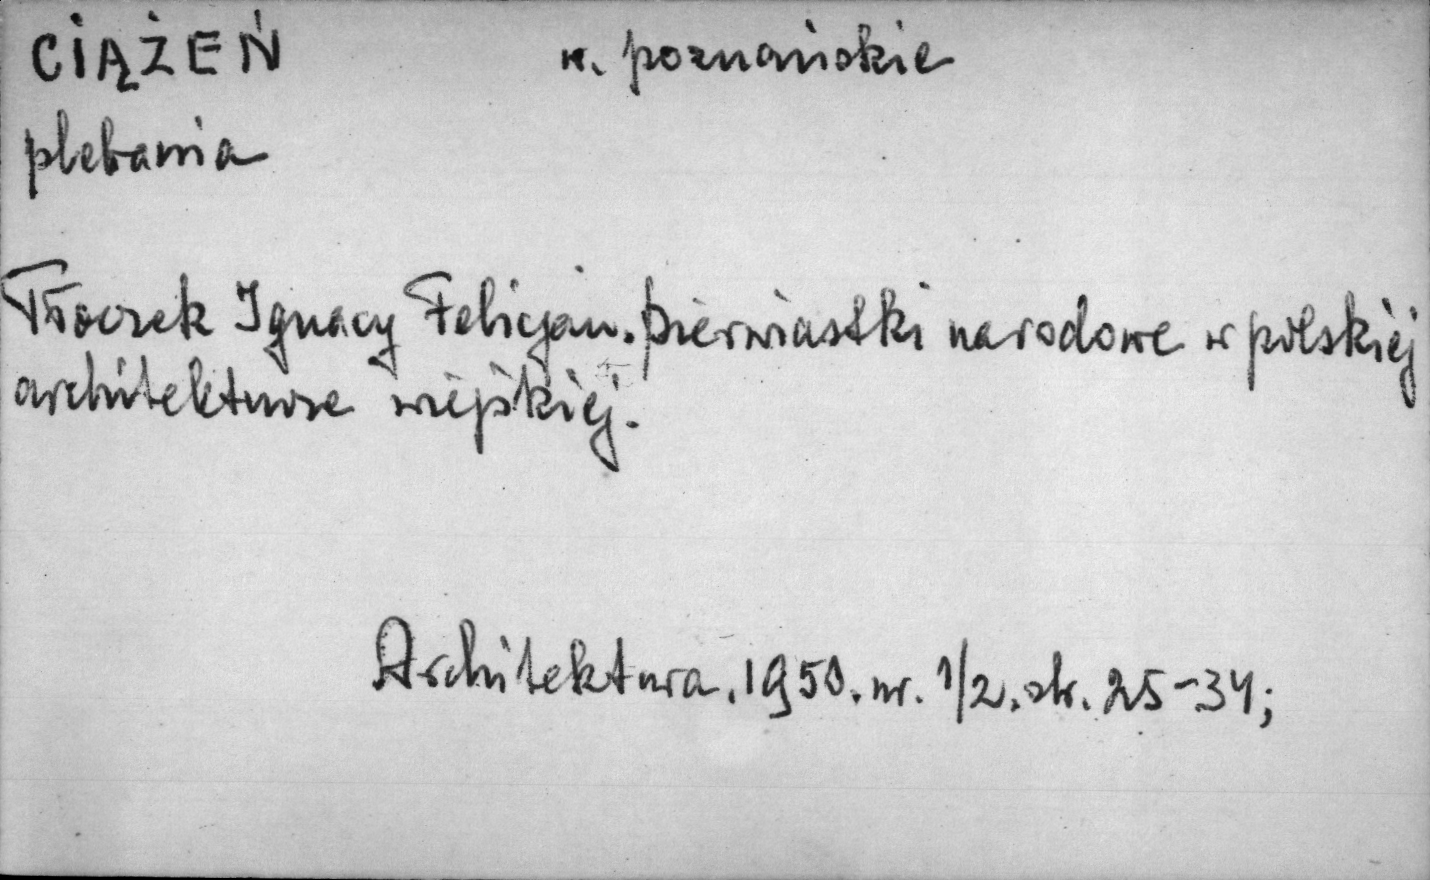 CIĄŻEŃ w. poznańskie
plebania
Tłoczek Ignacy Felicjan. Pierwiastki narodowe w polskiej
architekturze wiejskiej.
Architektura. 1950. nr. 1/2. str. 25-34;